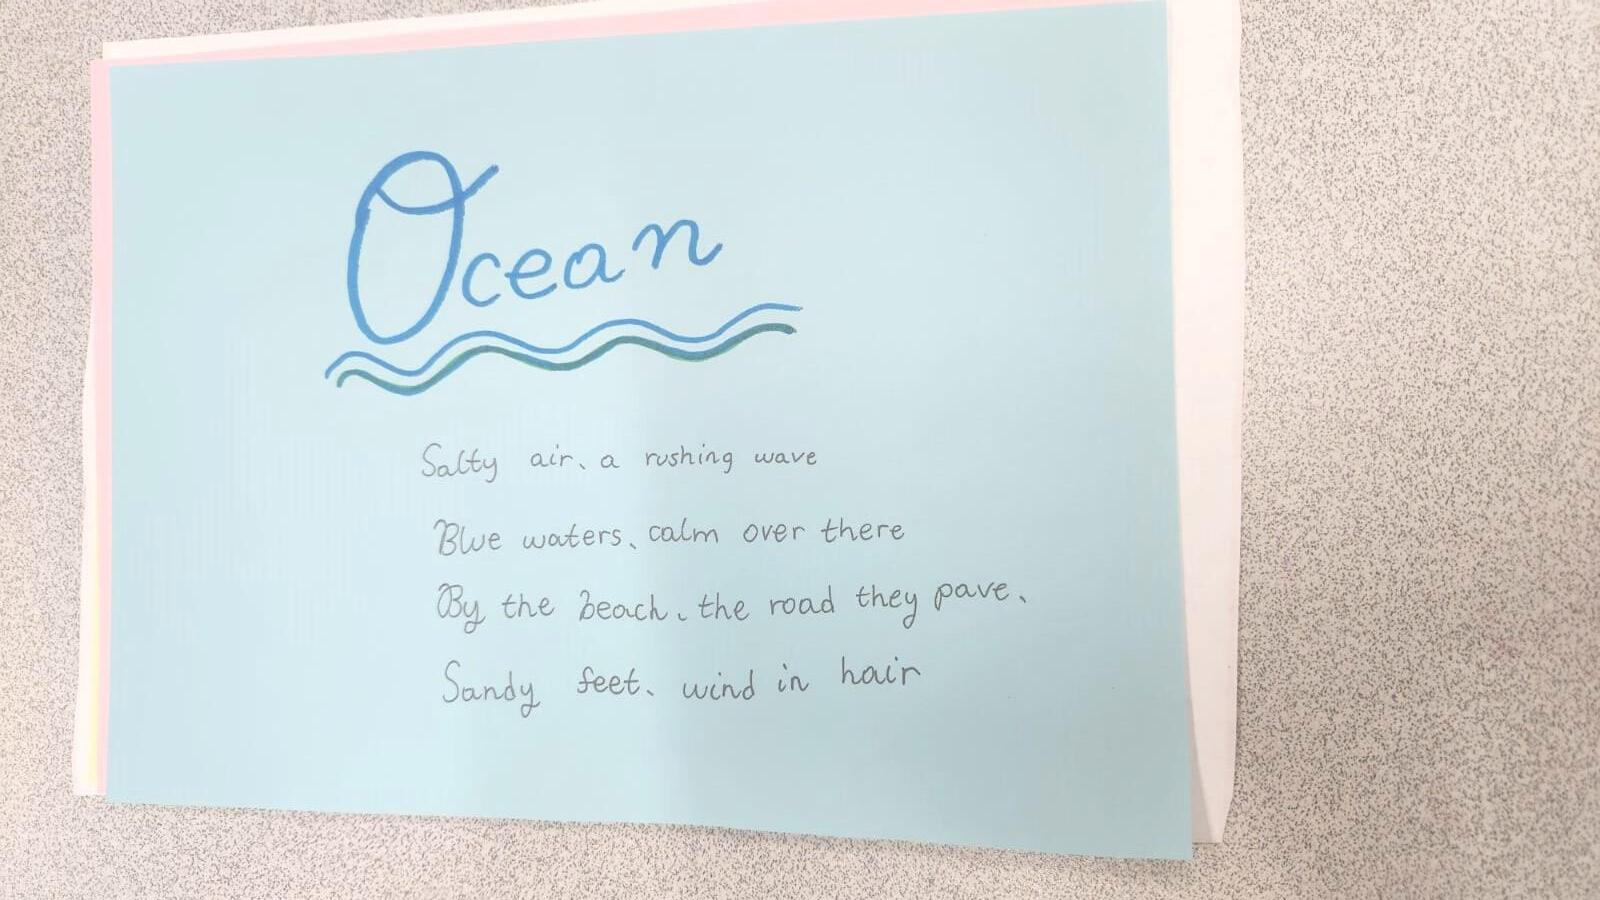 Ocean
Salty air, a rushing wave
Blue waters, calm over there
By the beach, the road they pave,
Sandy feet, wind in hair